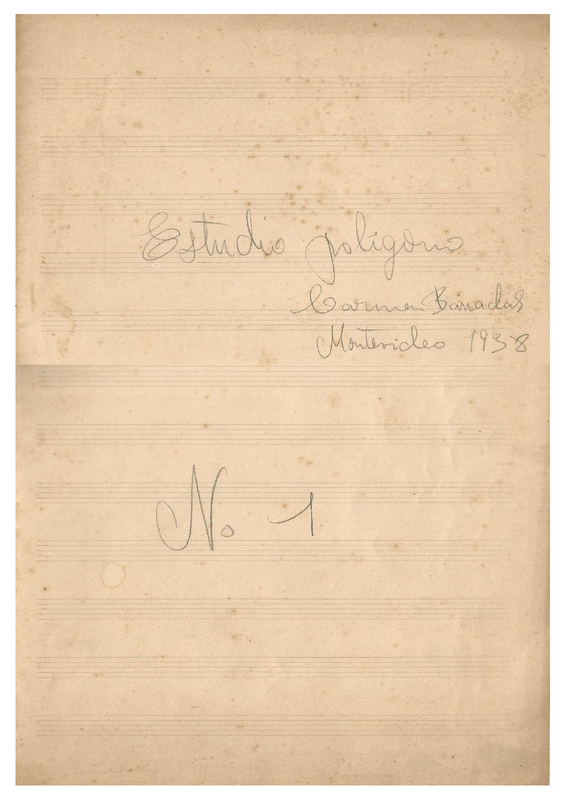 Estudio polígono
Carmen Barradas
Montevideo 1938
No 1